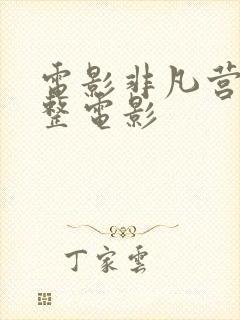 電影非凡营
整電影
丁家雲